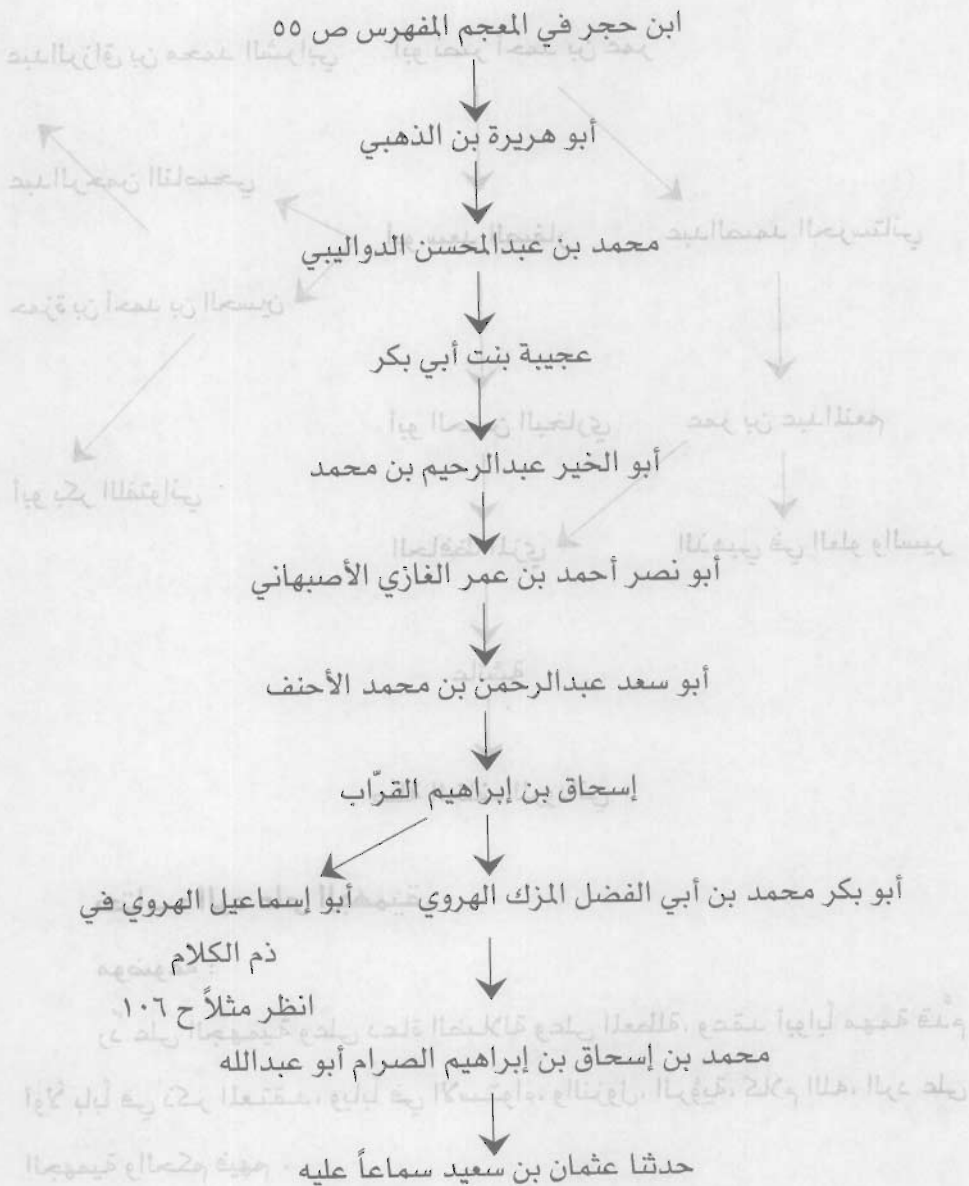 ابن حجر في المعجم المفهرس ص ٥٥
أبو هريرة بن الذهبي
محمد بن عبدالمحسن الدواليبي
عجيبة بنت أبي بكر
أبو الخير عبدالرحيم بن محمد
أبو نصر أحمد بن عمر الغازي الأصبهاني
أبو سعد عبدالرحمن بن محمد الأحنف
إسحاق بن إبراهيم القرّاب
أبو بكر محمد بن أبي الفضل المزك الهروي
أبو إسماعيل الهروي في
ذم الكلام
انظر مثلاً ح ١٠٦
محمد بن إسحاق بن إبراهيم الصرام أبو عبدالله
حدثنا عثمان بن سعيد سماعاً عليه